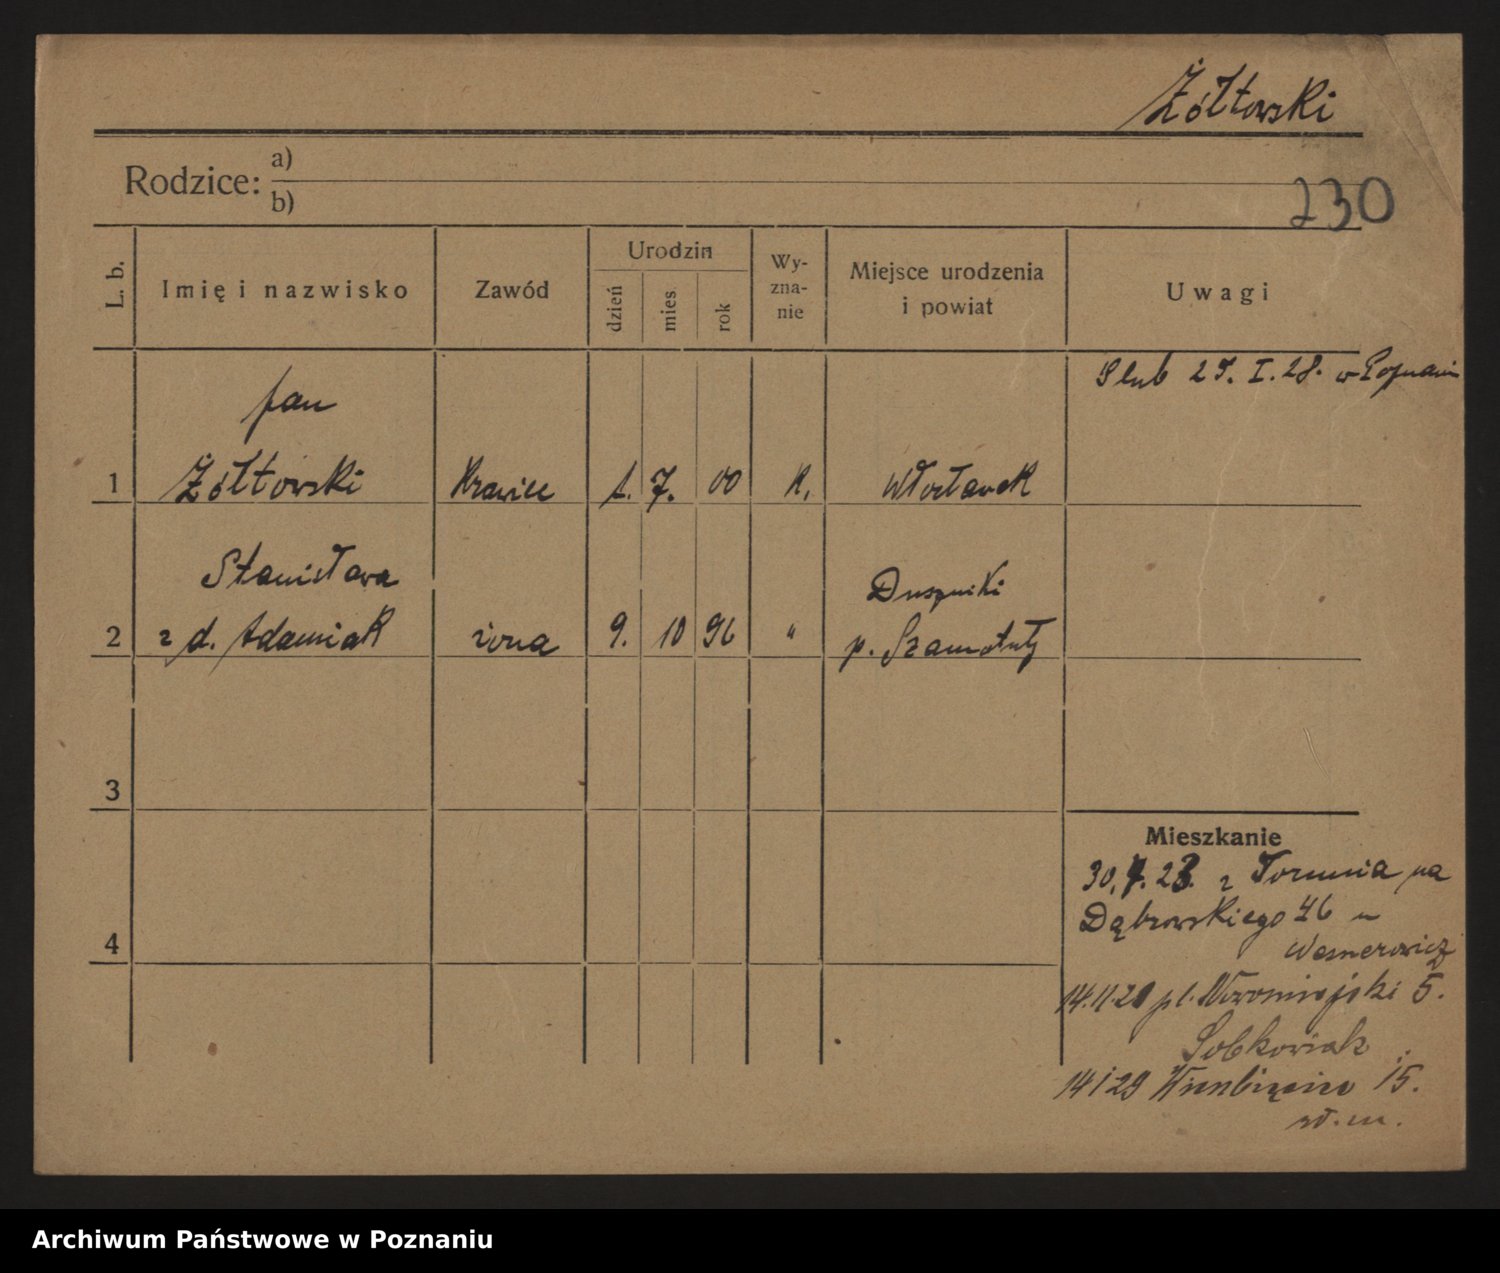 Żółtowski
Rodzice: a)
b)
230
L. b.
Imię i nazwisko
Zawód
Urodzin
dzień
mies.
rok
Wy-
zna-
nie
Miejsce urodzenia
i powiat
Uwagi
Ślub 25. I. 28. w Poznaniu
Jan
1 Żółtowski krawiec 1. 7. 00 K. Włocławek
Stanisława Duszniki
2 z d. Adamiak żona 9. 10 96 " p. Szamotuły
3
Mieszkanie
30. 28. z Torunia na
Dąbrowskiego 46 u
4
14.11.28 pl. 5.
Sobkowiak
14 1 29 Wierzbięcice 15.
wł. m.
Archiwum Państwowe w Poznaniu